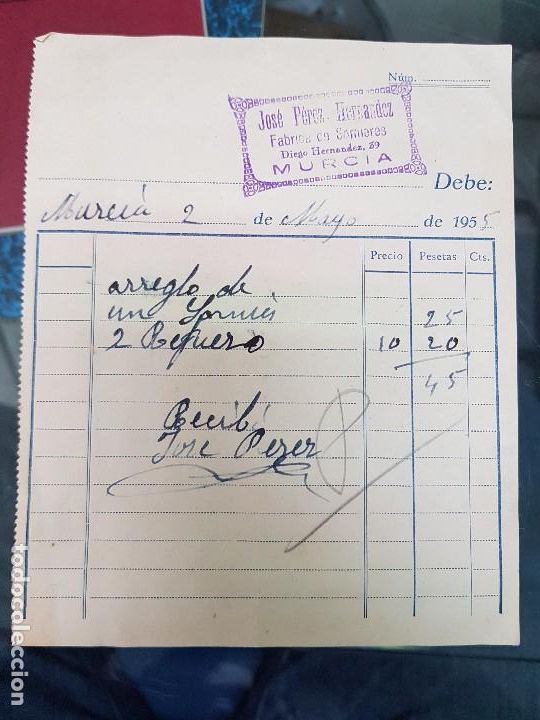 Núm.
José Pérez Hernandez
Fabrica de Somieres
Diego Hernandez, 39
MURCIA
Debe:
Murcia 2 de Mayo de 1955
Precio Pesetas Cts.
arreglo de
un Somier 25
2 10 20
45
Recibí
Jose Perez
todocoleccion.net
todocoleccion